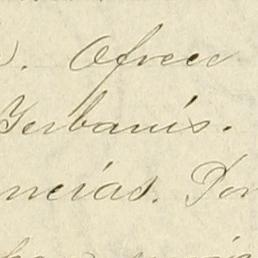 ). Ofrece
Yerbanís.
ncias. Por